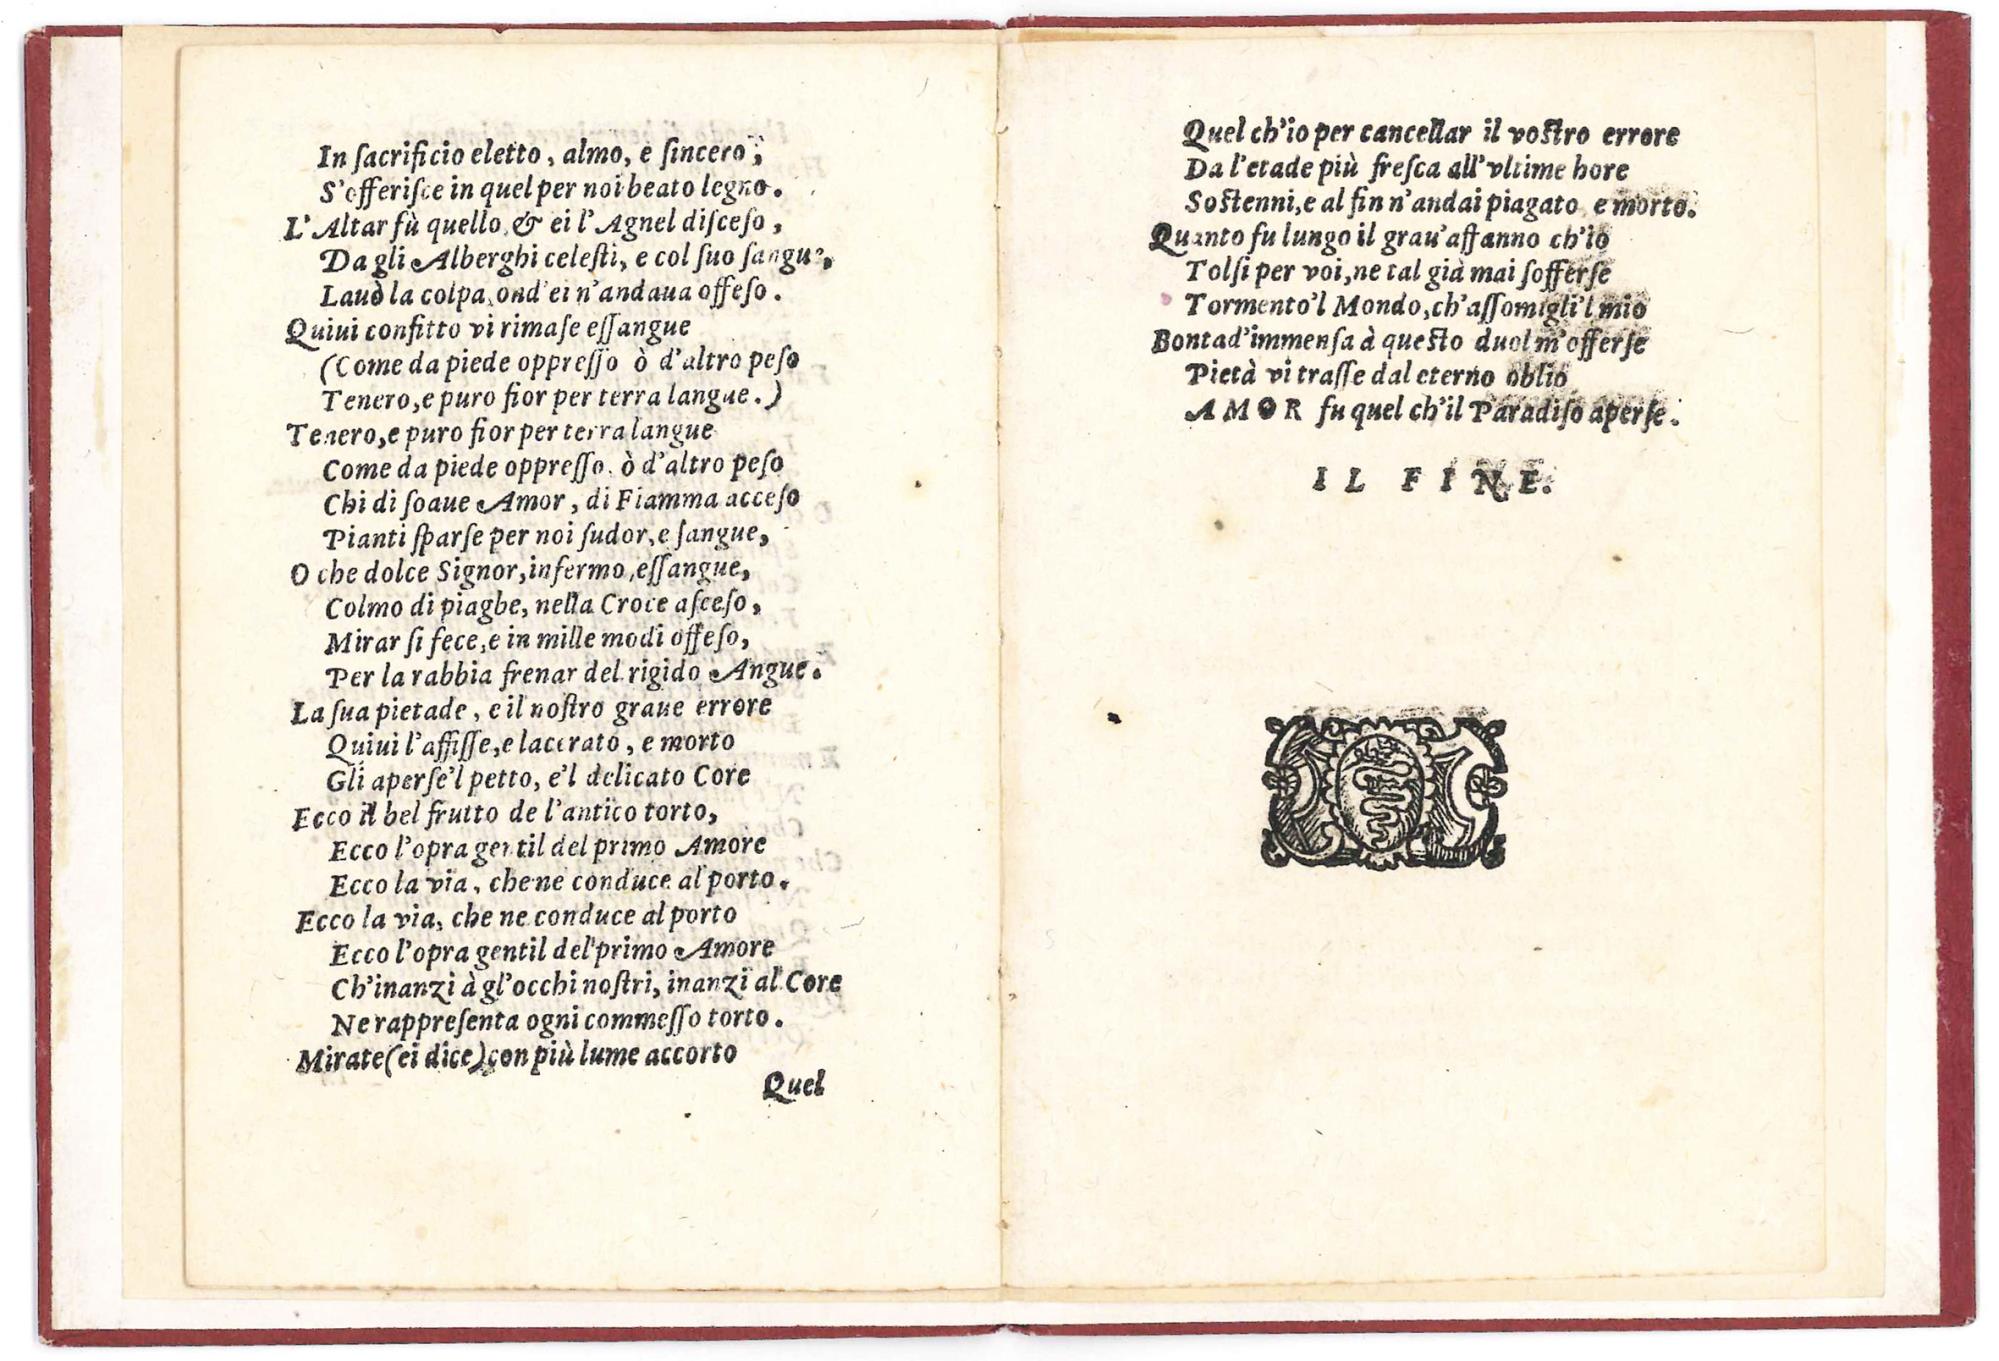 In ſacrificio eletto, almo, e ſincero,
S'offeriſce in quel per noi beato legno.
L'Altar fù quello, & ei l'Agnel diſceſo,
Da gli Alberghi celeſti, e col ſuo ſangue,
Lauò la colpa, ond'ei n'andaua offeſo.
Quiui confitto vi rimaſe eſſangue
(Come da piede oppreſſo ò d'altro peſo
Tenero, e puro fior per terra langue.)
Tenero, e puro fior per terra langue
Come da piede oppreſſo, ò d'altro peſo
Chi di ſoaue Amor, di Fiamma acceſo
Pianti ſparſe per noi ſudor, e ſangue,
O che dolce Signor, infermo, eſſangue,
Colmo di piaghe, nella Croce aſceſo,
Mirar ſi fece, e in mille modi offeſo,
Per la rabbia frenar del rigido Angue.
La ſua pietade, e il noſtro graue errore
Quiui l'affiſſe, e lacerato, e morto
Gli aperſe'l petto, e'l delicato Core
Ecco il bel frutto de l'antico torto,
Ecco l'opra gentil del primo Amore
Ecco la via, che ne conduce al porto.
Ecco la via, che ne conduce al porto
Ecco l'opra gentil del primo Amore
Ch'inanzi à gl'occhi noſtri, inanzi al Core
Ne rappreſenta ogni commeſſo torto.
Mirate (ei dice) con più lume accorto
Quel
Quel ch'io per cancellar il voſtro errore
Da l'etade più freſca all'vltime hore
Soſtenni, e al fin n'andai piagato, e morto.
Quanto fu lungo il grau'affanno ch'io
Tolſi per voi, ne tal già mai ſofferſe
Tormento'l Mondo, ch'aſſomigli'l mio
Bontad'immenſa à queſto duol m'offerſe
Pietà vi traſſe dal eterno oblio
AMOR fu quel ch'il Paradiſo aperſe.
IL FINE.